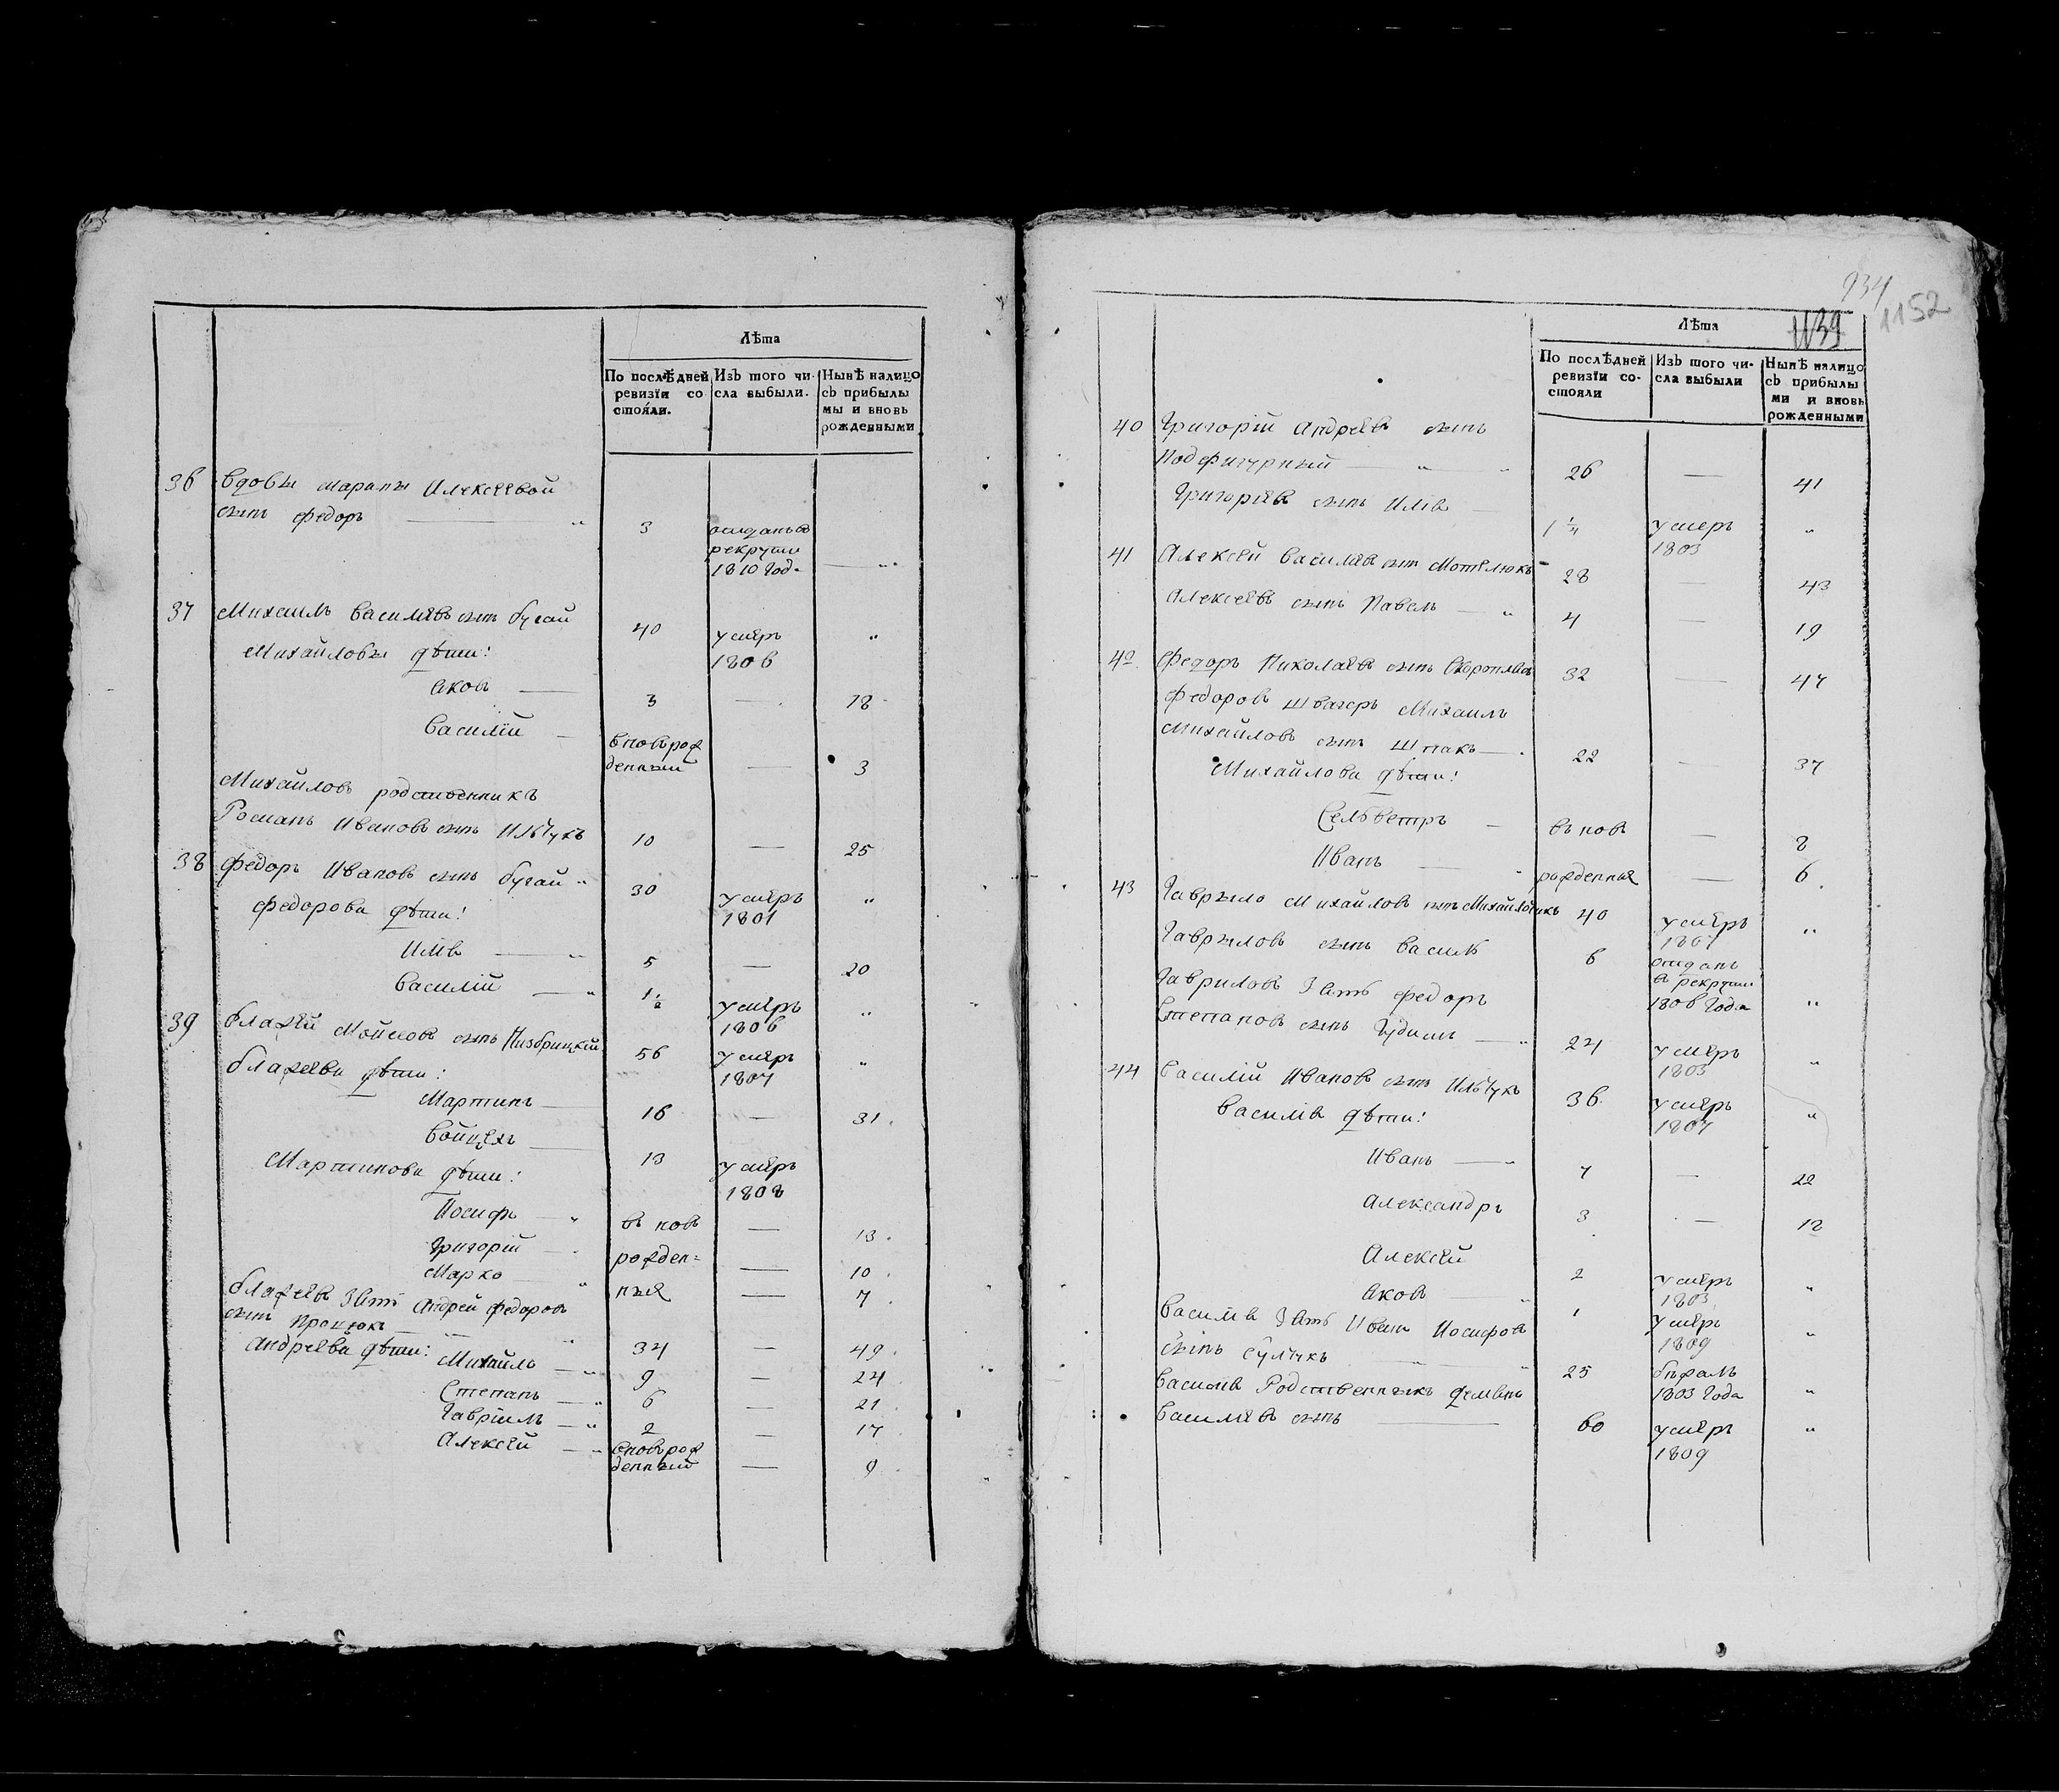 Лѣта
По послѣдней ревизїи состояли.
Изъ того числа выбыли.
Нынѣ налицо съ прибылы ми и вновь рожденными
36 вдовы марины Илексеевой
сынъ федоръ — „ 3 отданъ въ рекруты 1810 год. — „
37 Михаилъ василиевъ сынъ бугай 40 умеръ 1806 „
Михайловы дѣти:
Яковъ — 3 — 18
василій — вновьрожденный — 3
Михайловъ родственникъ
Романъ Ивановъ сынъ Ильчукъ 10 — 25
38 федоръ Ивановъ сынъ бугай „ 30 умеръ 1801 „
федорови дѣти:
Илія — „ 5 — 20
василій — „ 1½ умеръ 1806 „
39 блажей Мойсеовъ сынъ 56 умеръ 1807 „
блажеви дѣти:
Мартинъ — 16 — 31.
войцехъ — 13 умеръ 1808
Мартинови дѣти:
Іосифъ — „ въ новъ — 13.
григорій — рожден= — 10.
Марко — „ ныя — 7.
блажеевъ зять Андрей федоровъ
сынъ Процюкъ — „ 34 — 49.
Андрееви дѣти: Михайло — „ 9 — 24
Степанъ — „ 6 — 21.
гавріилъ — „ 2 — 17.
Алексей — „ вновьрожденный — 9.
934
1152
1139
Лѣта
По послѣдней ревизїи состояли
Изъ того числа выбыли
Нынѣ налицо съ прибылы ми и вновь рожденными
40 григорій Андреевъ сынъ
Подфигурный — „ „ 26 — 41
григориевъ сынъ Илія — 1¼ умеръ 1803 „
41 Алексей василиевъ сынъ Мотелюкъ 28 — 43
Алексеевъ сынъ Павелъ — „ 4 — 19
42. федоръ Николаевъ сынъ 32 — 47
федоровъ швагеръ Михаилъ
Михайловъ сынъ Шпакъ — . 22 — 37
Михайлови дѣти:
Сельветръ — въ новъ — 8
Иванъ — „ рожденныя — 6.
43 гаврыло Михайловъ сынъ 40 умеръ 1807 „
гаврыловъ сынъ василь 6 отданъ в рекруты 1806 года „
гавриловъ зять федоръ
Степановъ сынъ гудимъ — „ 24 умеръ 1803 „
44 василій Ивановъ сынъ Ильчукъ 36. умеръ 1807 „
василія дѣти:
Иванъ — „ 7 — 22
Александръ 3 — 18
Алексей 2 умеръ 1803 „
Яковъ — „ 1 умеръ 1809 „
василія зять Иванъ Иосифовъ
сынъ — „ 25 бежалъ 1803 года „
василия Родственныкъ демянъ
василиевъ сынъ — 60 умеръ 1809 „